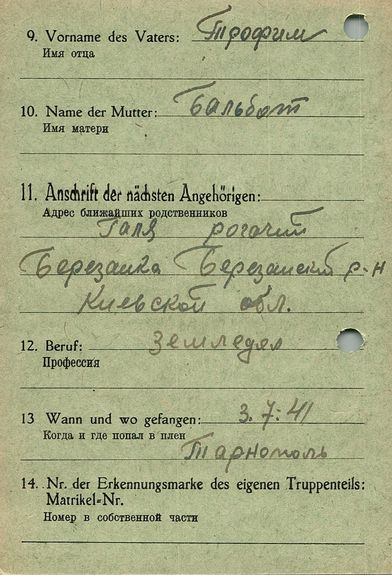 9. Vorname des Vaters: Трофим
Имя отца
10. Name der Mutter: Бальбот
Имя матери
11. Anschrift der nächsten Angehörigen:
Адрес ближайших родственников
Галя рогачий
Березанка Березанский р-н
Киевской обл.
12. Beruf: Земледел
Профессия
13 Wann und wo gefangen: 3.7.41
Когда и где попал в плен
Тарнополь
14. Nr. der Erkennungsmarke des eigenen Truppenteils:
Matrikel-Nr.
Номер в собственной части